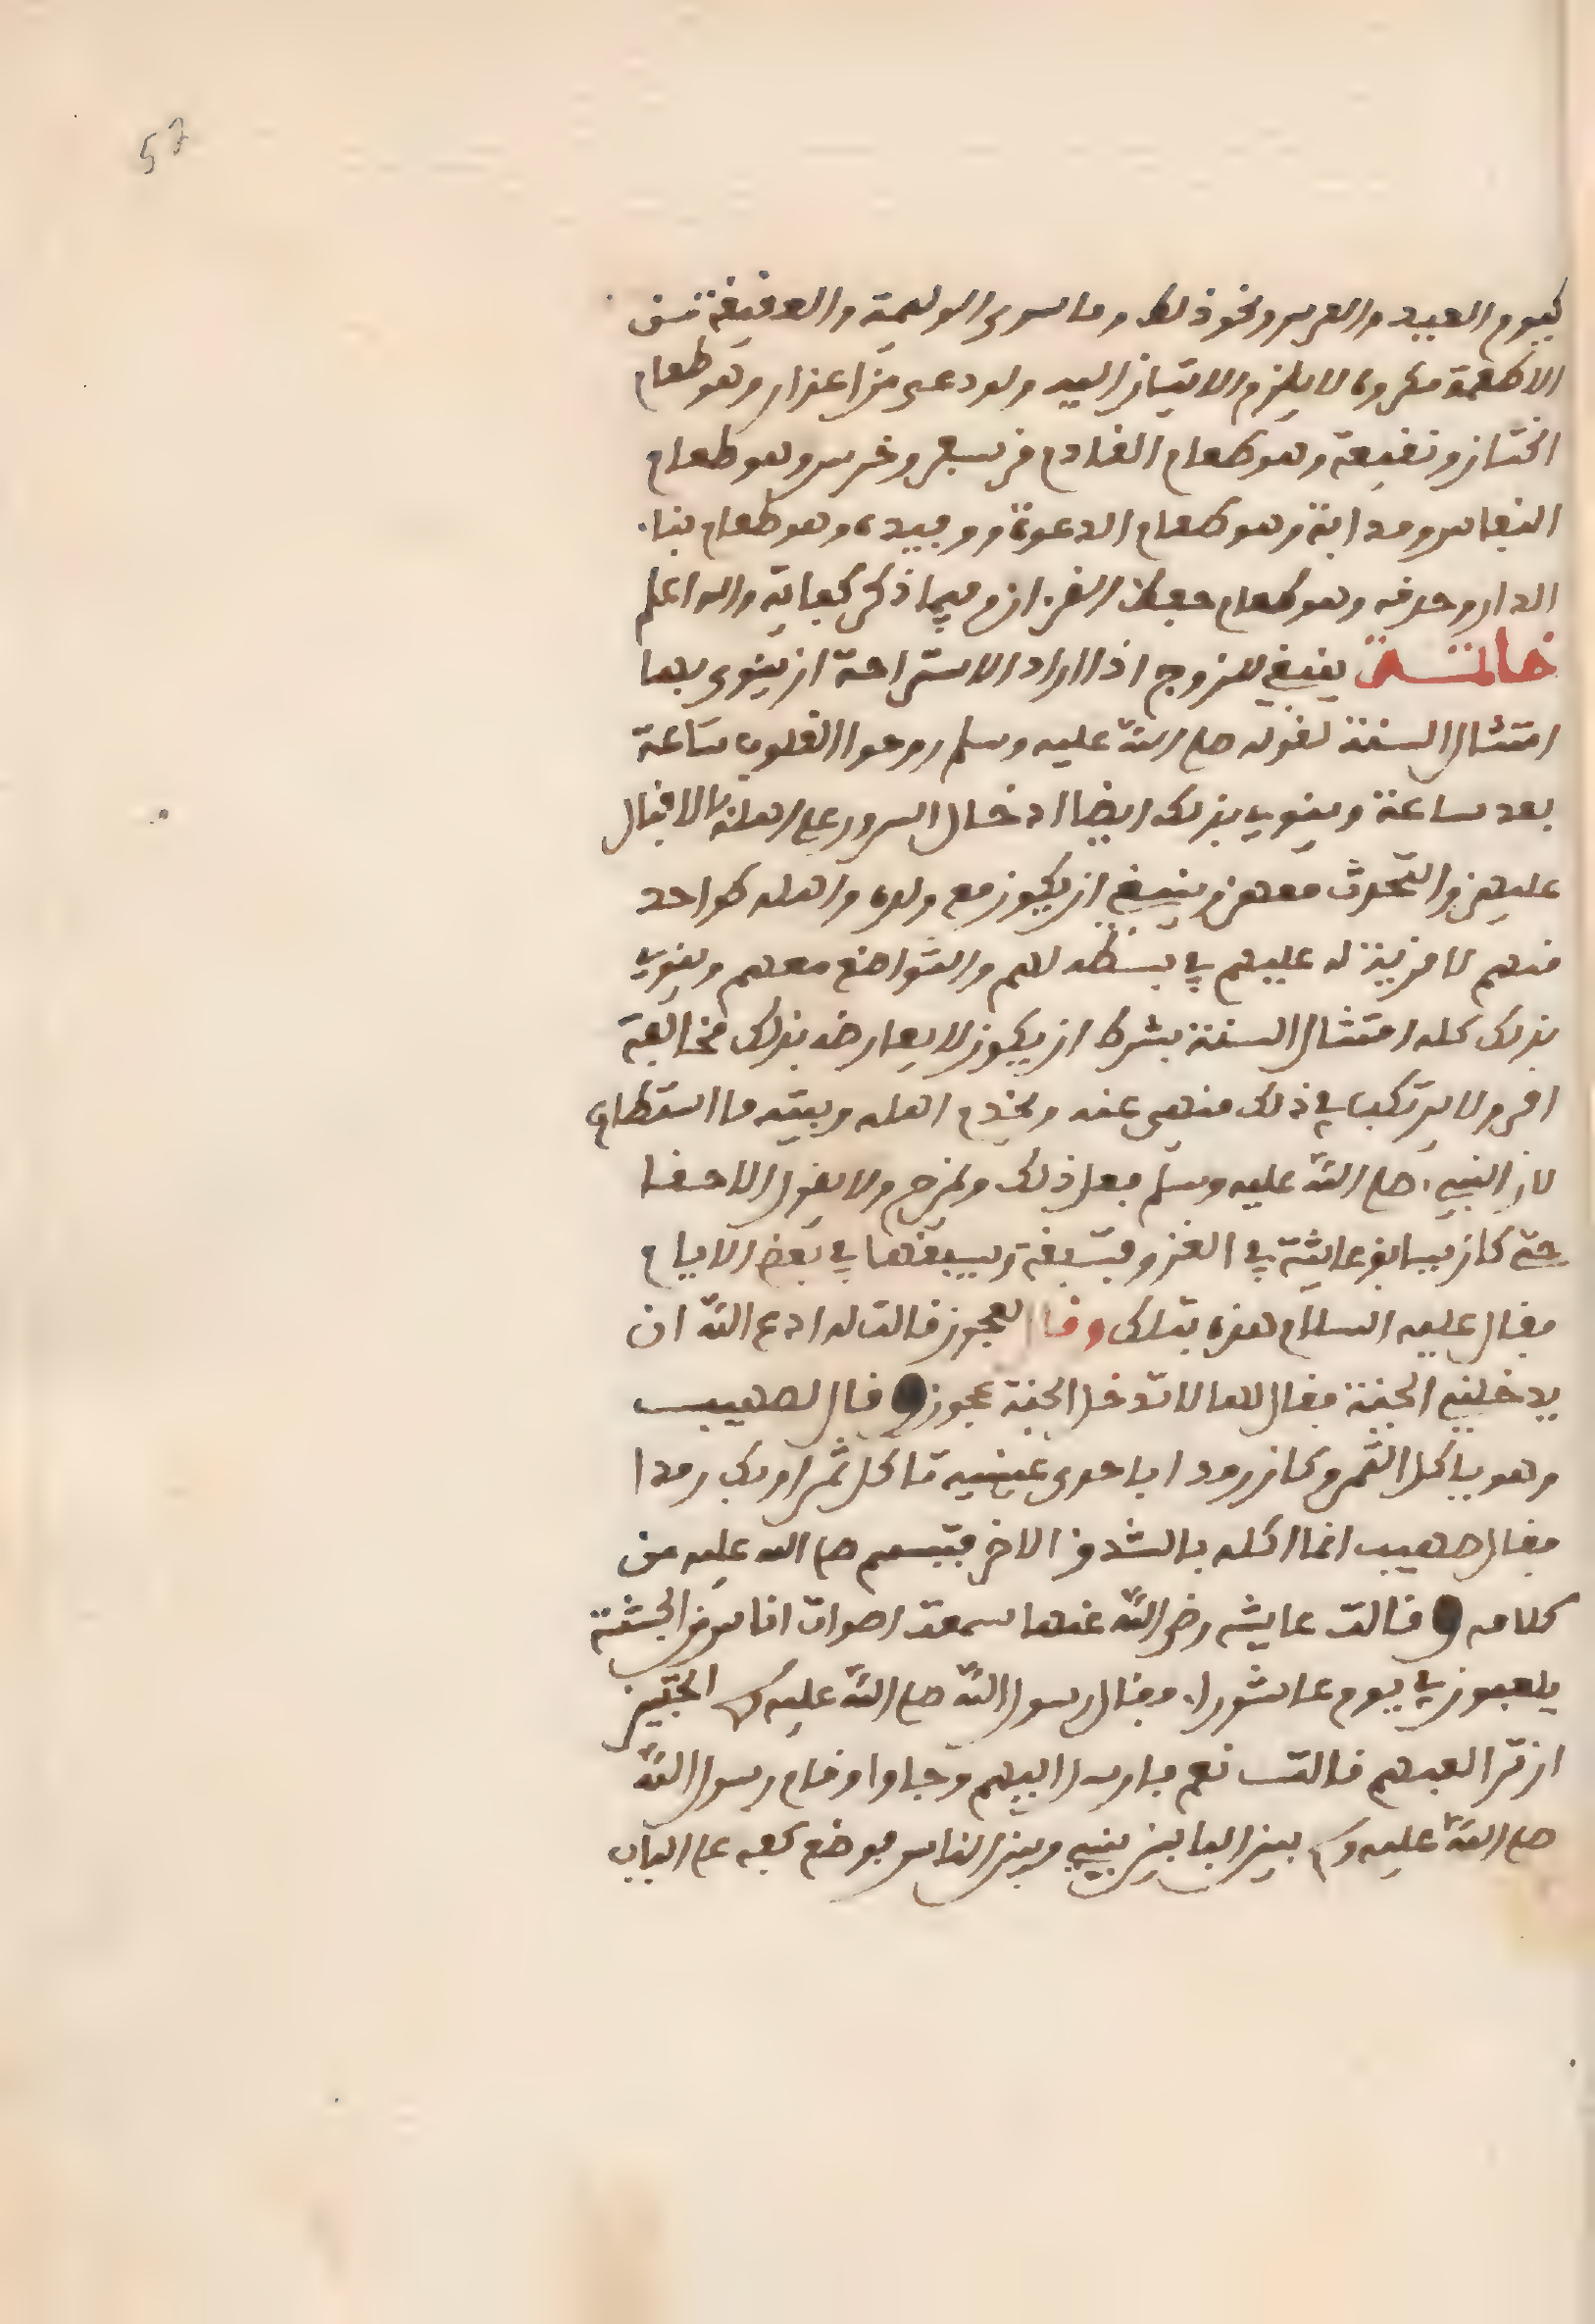 57
كيوم العيد والعرس ونحو ذلك وما سوى الوليمة والعقيقة من
الاطعمة مكروه لا يلزم الاتيان اليه ولو دعى من اعذار وهو طعام
الختان ونقيعة وهو طعام القادم من سفر وخرس وهو طعام
النفاس ومدابة وهو طعام الدعوة ووكيدة وهو طعام بناء
الدار وحدقه وهو طعام حفظ القرءان وفيما ذكر كفاية والله اعلم
خاتمة ينبغي للزوج اذا اراد الاستراحة ان ينوى بها
امتثال السنة لقوله صلى الله عليه وسلم روحوا القلوب ساعة
بعد ساعة وينوي بذلك ايضا ادخال السرور على اهله بالاقبال
عليهن والتحدث معهن وينبغي ان يكون مع ولده واهله كواحد
منهم لا مزية له عليهم في بسطه لهم والتواضع معهم وينوي
بذلك كله امتثال السنة بشرط ان يكون لا يعارضه بذلك مخالفة
امر ولا يرتكب في ذلك منهى عنه ويخدم اهله وبيته ما استطاع
لان النبيء صلى الله عليه وسلم فعل ذلك ويمزح ولا يقول الا حقا
حتى كان يسابق عائشة في الغزو فتسبقه ويسبقها في بعض الايام
فقال عليه السلام هذه بتلك وقال لعجوز قالت له ادع الله ان
يدخلني الجنة فقال لها لا تدخل الجنة عجوز وقال لصهيب
وهو ياكل التمر وكان رمدا باحدى عينيه تاكل تمرا وبك رمدا
فقال صهيب انما اكله بالشدق الاخر فتبسم صلى الله عليه من
كلامه وقالت عايشه رضي الله عنها سمعت اصوات اناس من الحبشة
يلعبون في يوم عاشوراء فقال رسول الله صلى الله عليه وسلم اتحبين
ان تر العبهم قالت نعم فارسل اليهم وجاوا وقام رسول الله
صلى الله عليه وسلم بين البابين بيني وبين الناس فوضع كفه على الباب